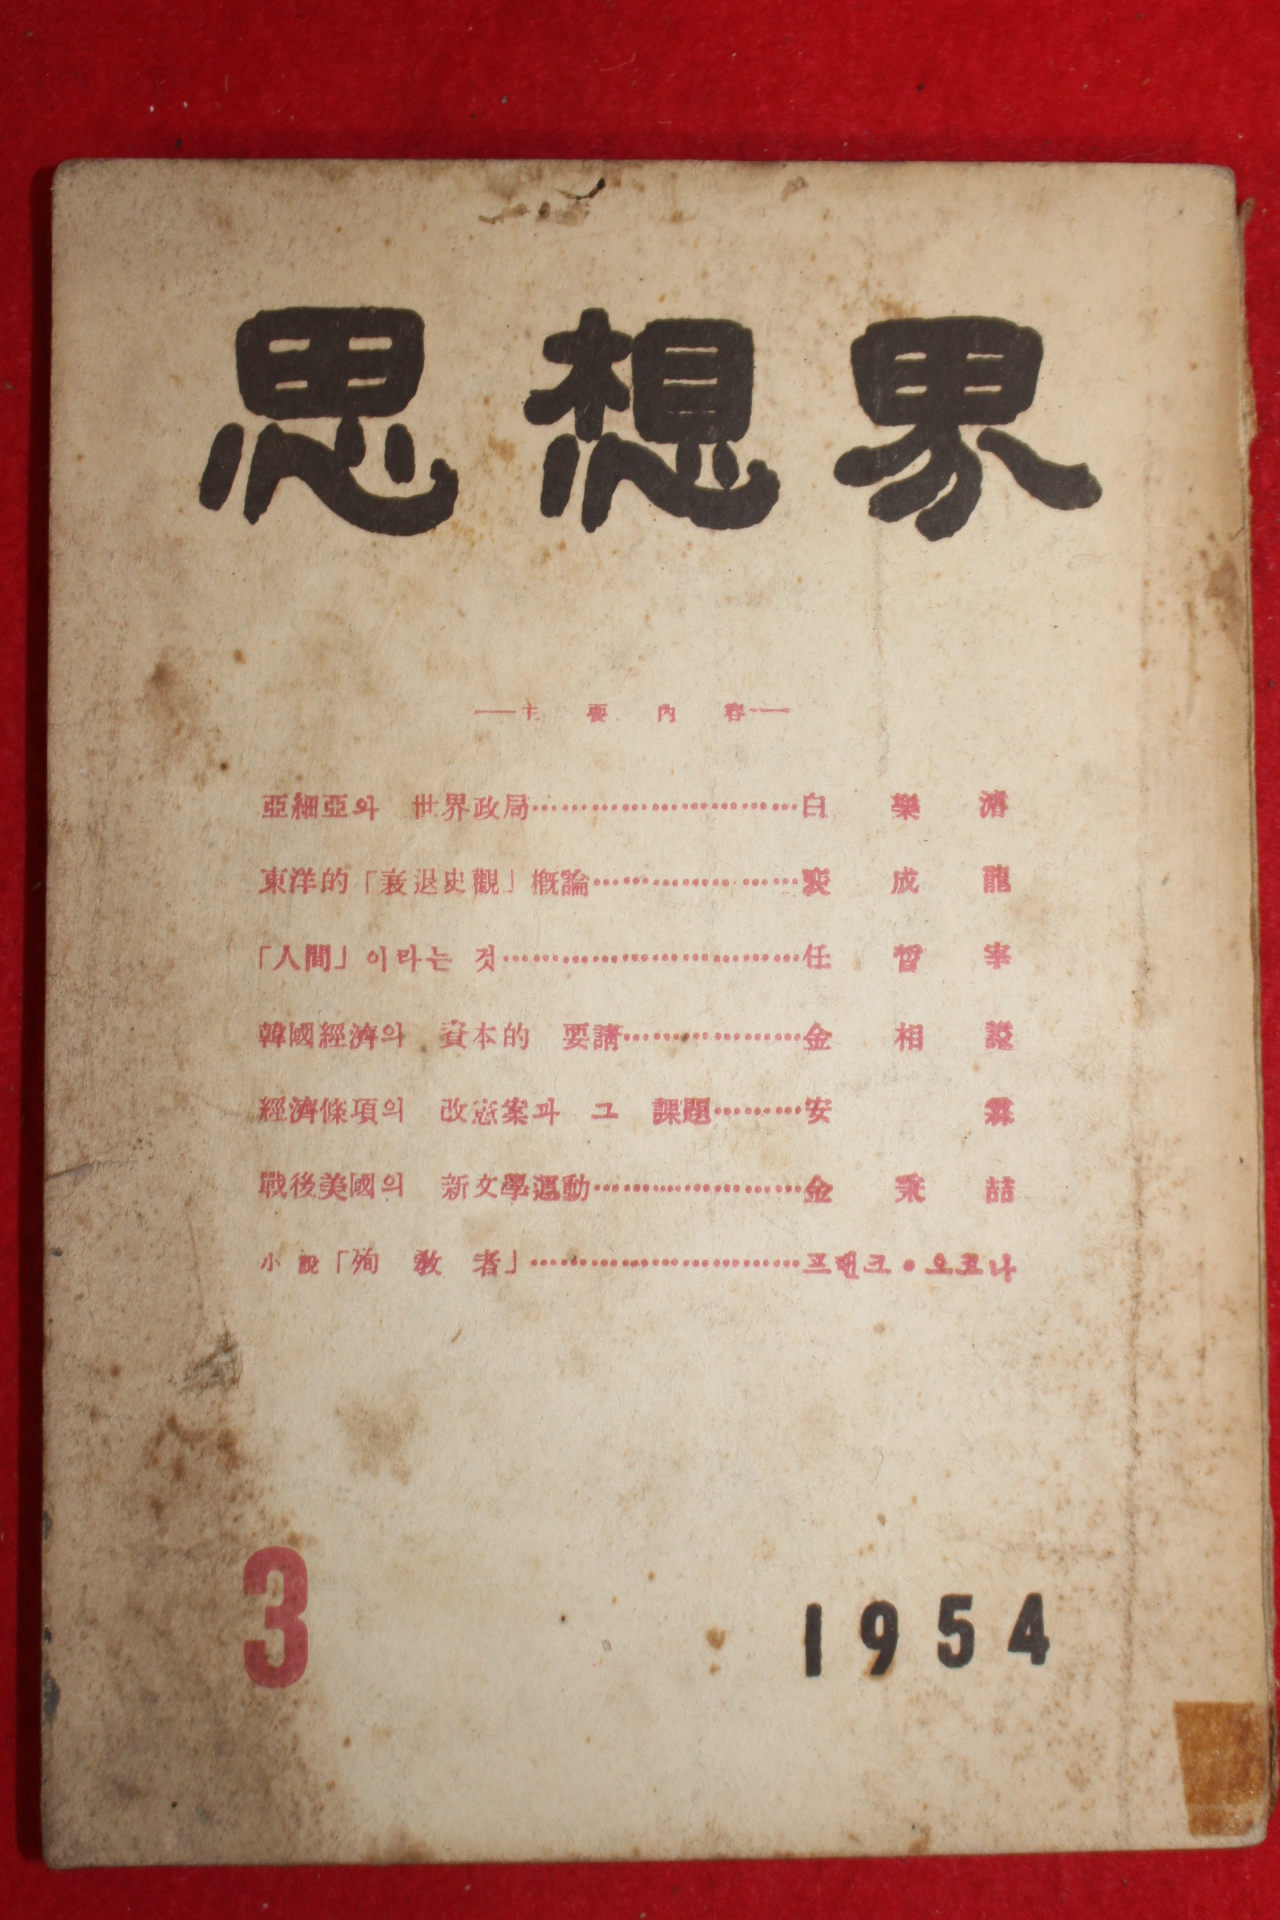 思想界
—主要內容—
亞細亞와 世界政局……………………白樂濬
東洋的「衰退史觀」槪論………………裵成龍
「人間」이라는 것………………………任晳宰
韓國經濟와 資本的 要請………………金相謙
經濟條項의 改憲案과 그 課題………安霖
戰後美國의 新文學運動………………金秉喆
小說「殉敎者」……………………프랜크・오코나
3
1954